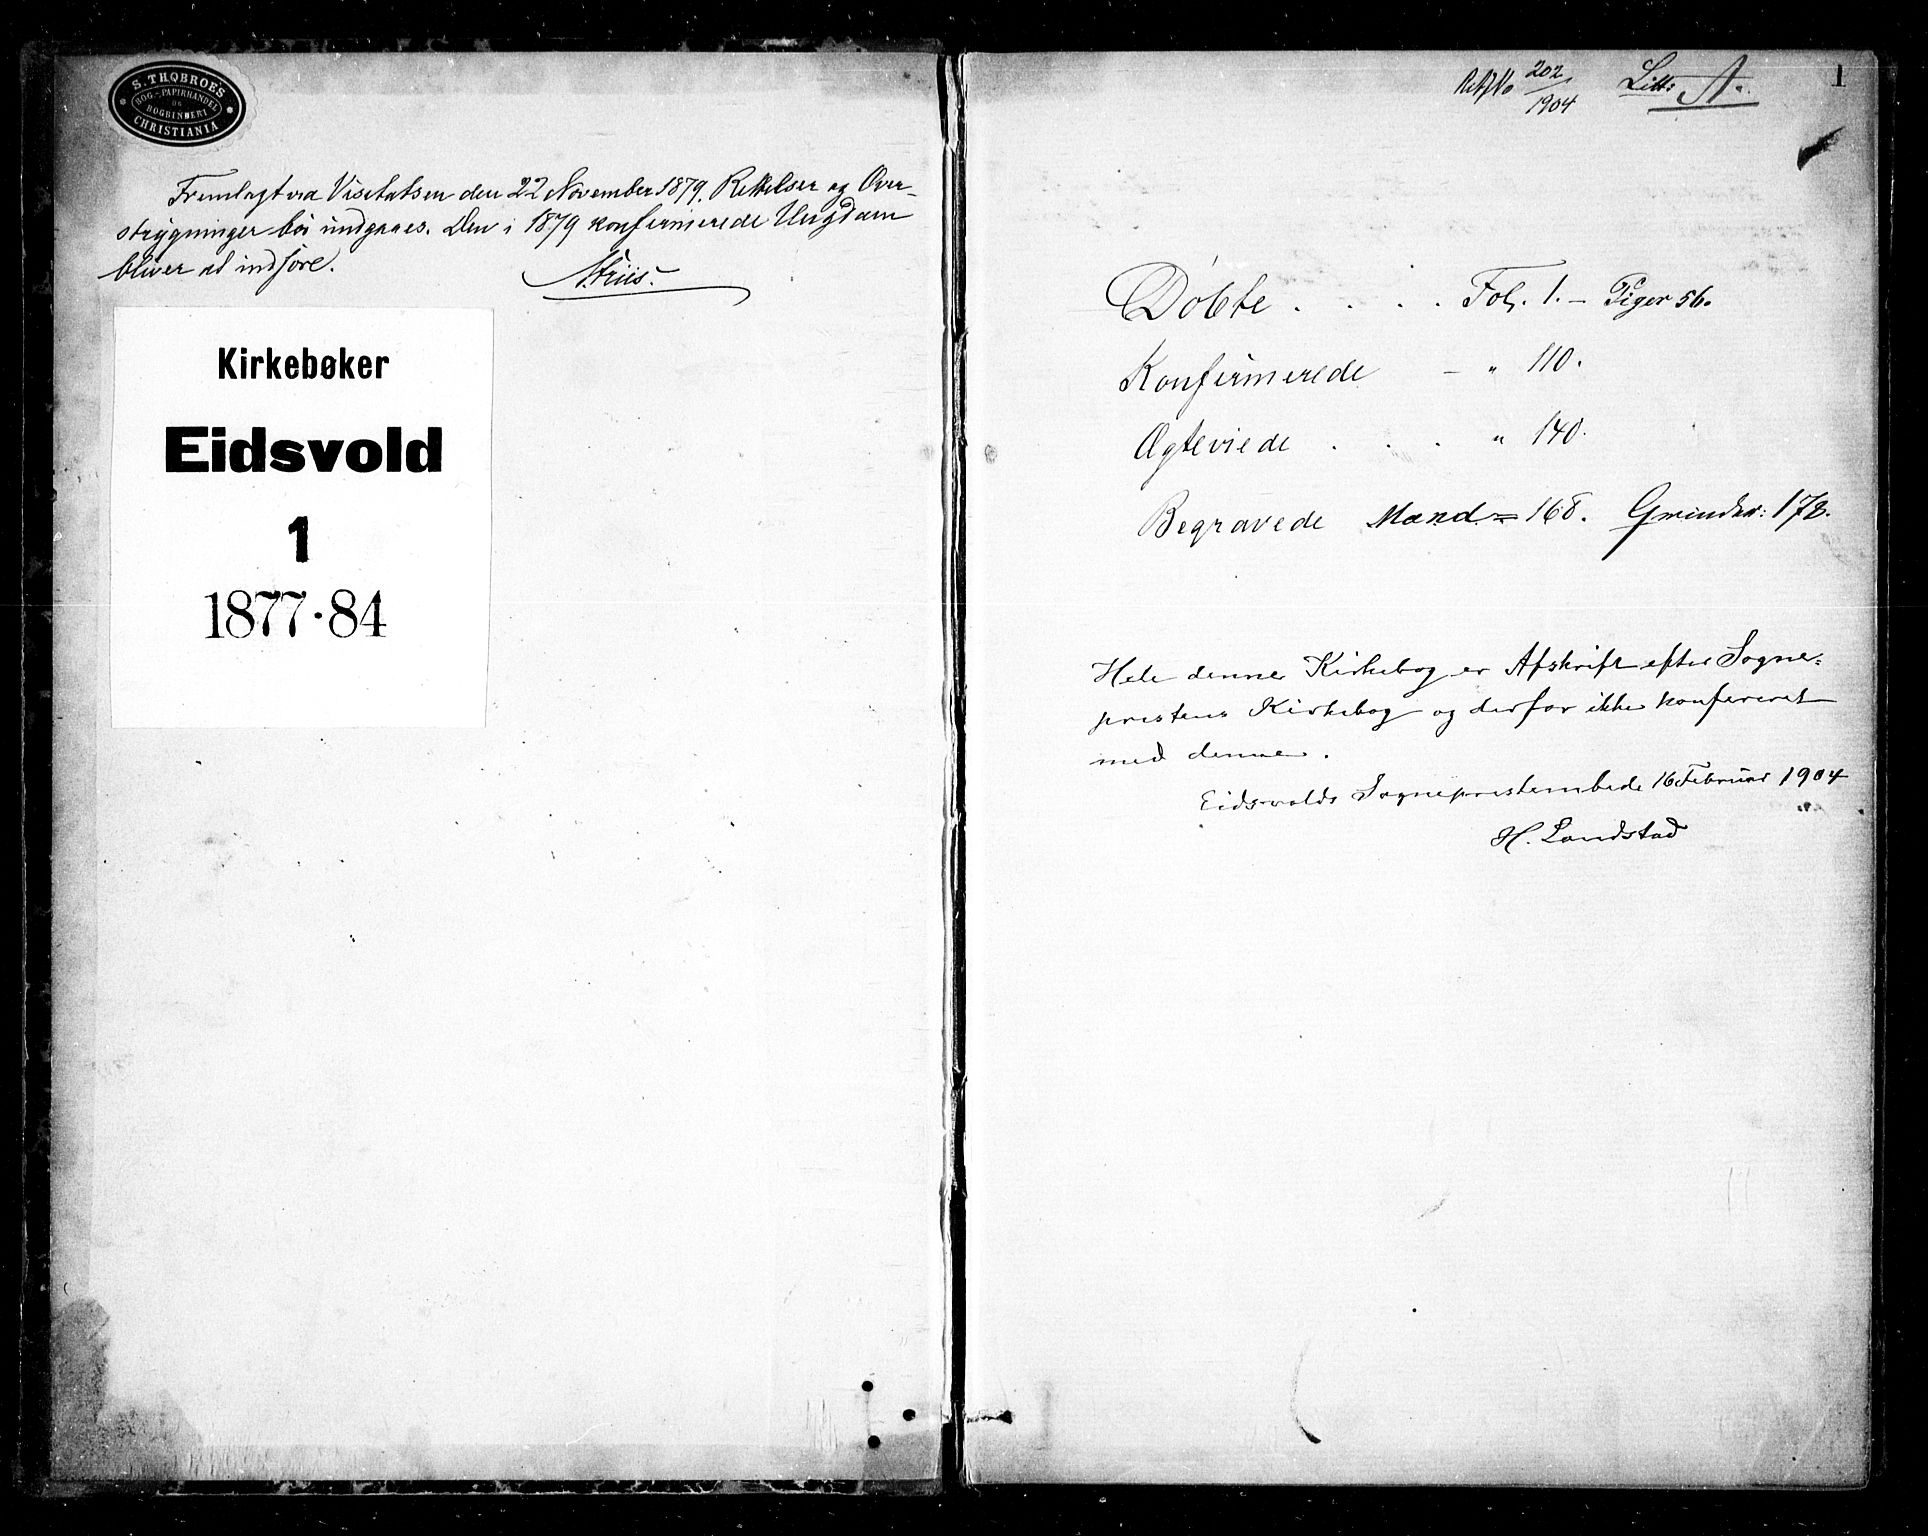 S. THOBROES
BOG- & PAPIRHANDEL
OG
BOGBINDERI
CHRISTIANIA
Fremlagt ved Visitatsen den 22 November 1879. Rettelser og Over-
strygninger bør undgaaes. Den i 1879 konfirmerede Ungdom
bliver at indføre.
Kirkebøker
Eidsvold
1
1877-84
202/1904 Litt: A. 1
Döbte . . . . Fol. 1. - Piger 56.
Konfirmerede - " 110.
Ægteviede . . . " 140.
Begravede Mænd = 168. Qvinder: 178.
Hele denne Kirkebog er Afskrift efter Sogne=
prestens Kirkebog og derfor ikke konfereret
med denne.
Eidsvolds Sogneprestembede 16 Februar 1904
H. Landstad